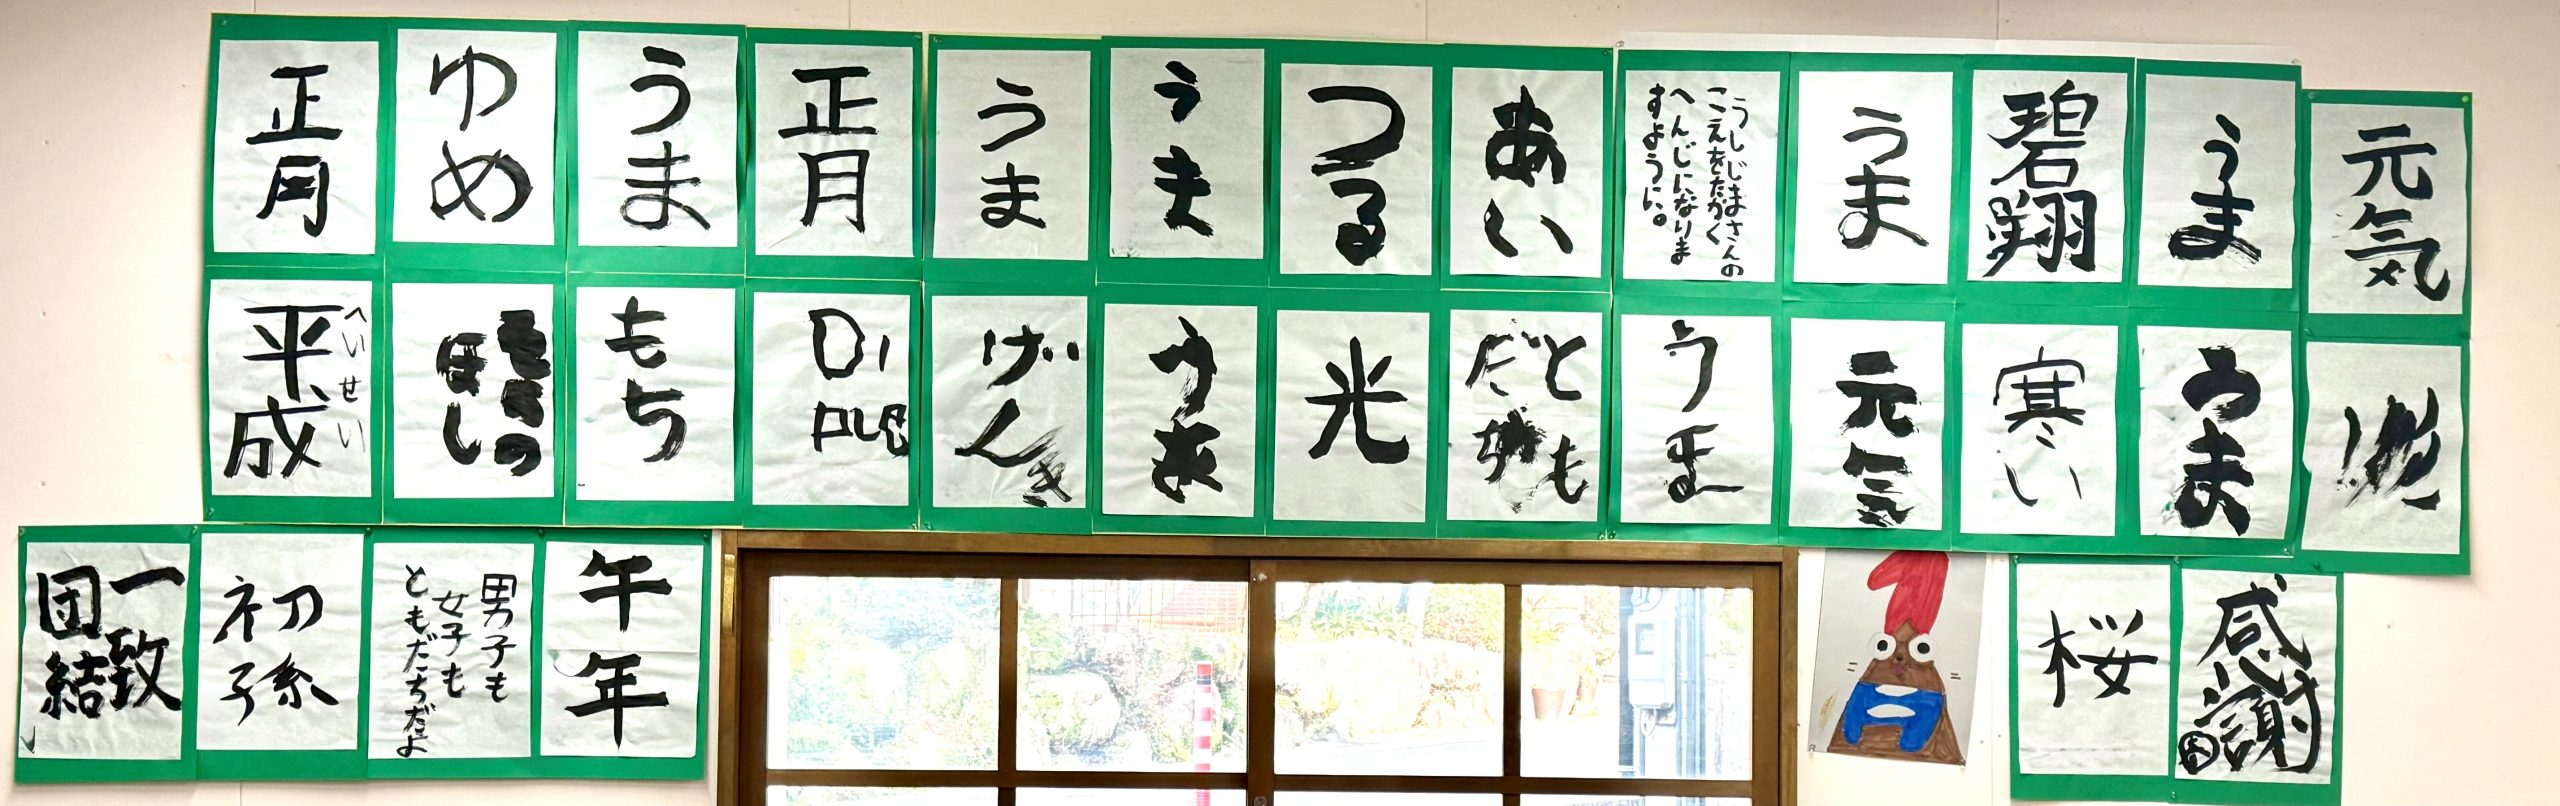 正月
ゆめ
うま
正月
うま
うま
つる
あい
うしじまさんの
こえをたかく
へんじになりま
すように。
うま
碧翔
うま
元気
平成
へいせい
ほし
もち
げんき
うま
光
とも
だち
うま
元気
寒い
うま
一致
団結
初孫
男子も
女子も
ともだちだよ
午年
桜
感謝